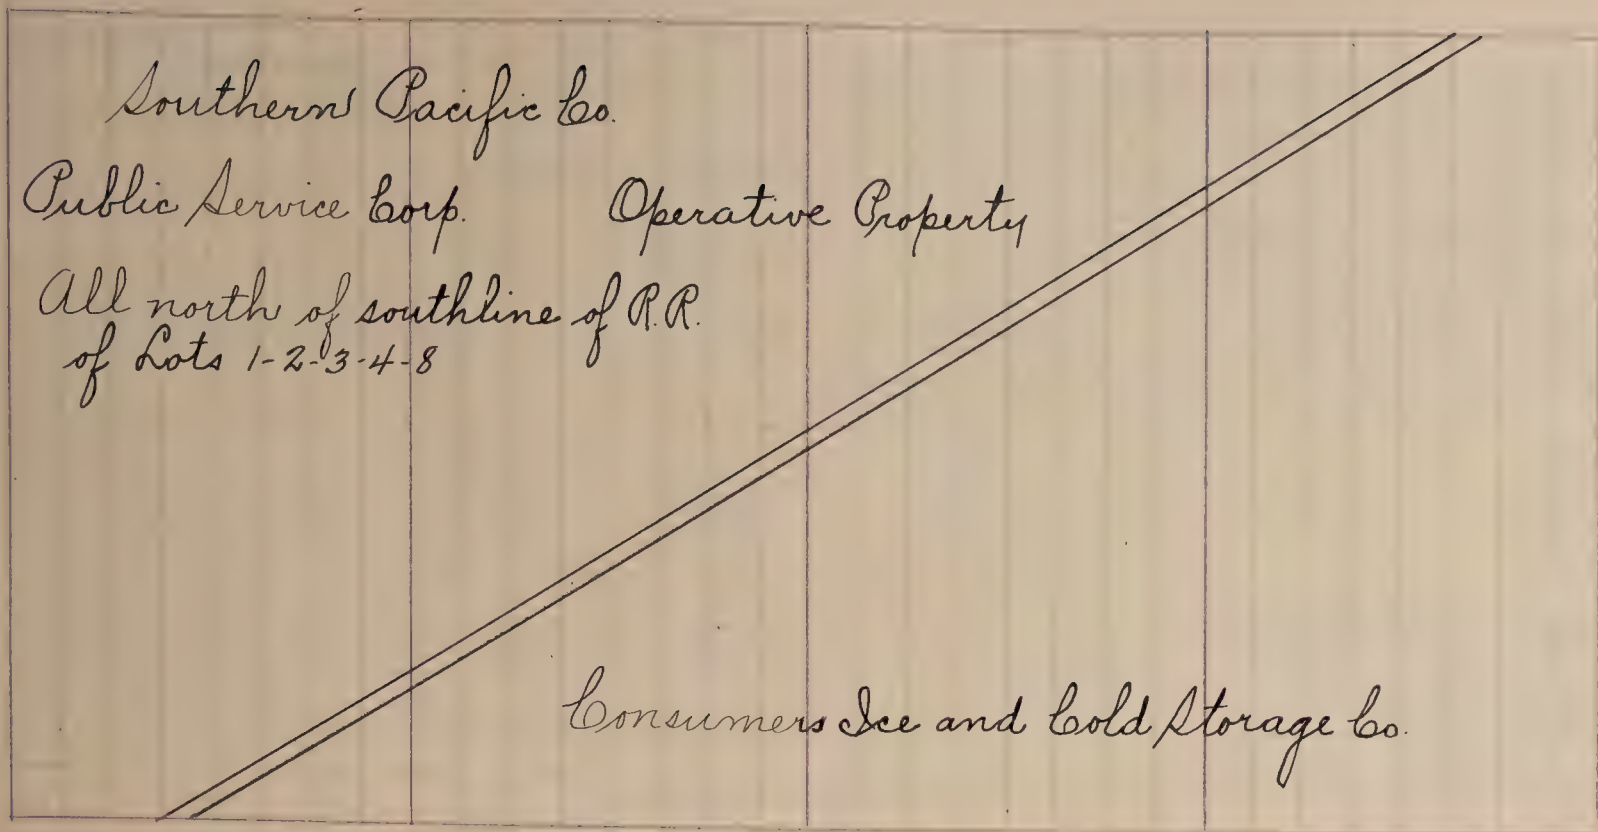 Southern Pacific Co.
Public Service Corp. Operative Property
All north of southline of R.R.
of Lots 1-2-3-4-8
Consumers Ice and Cold Storage Co.